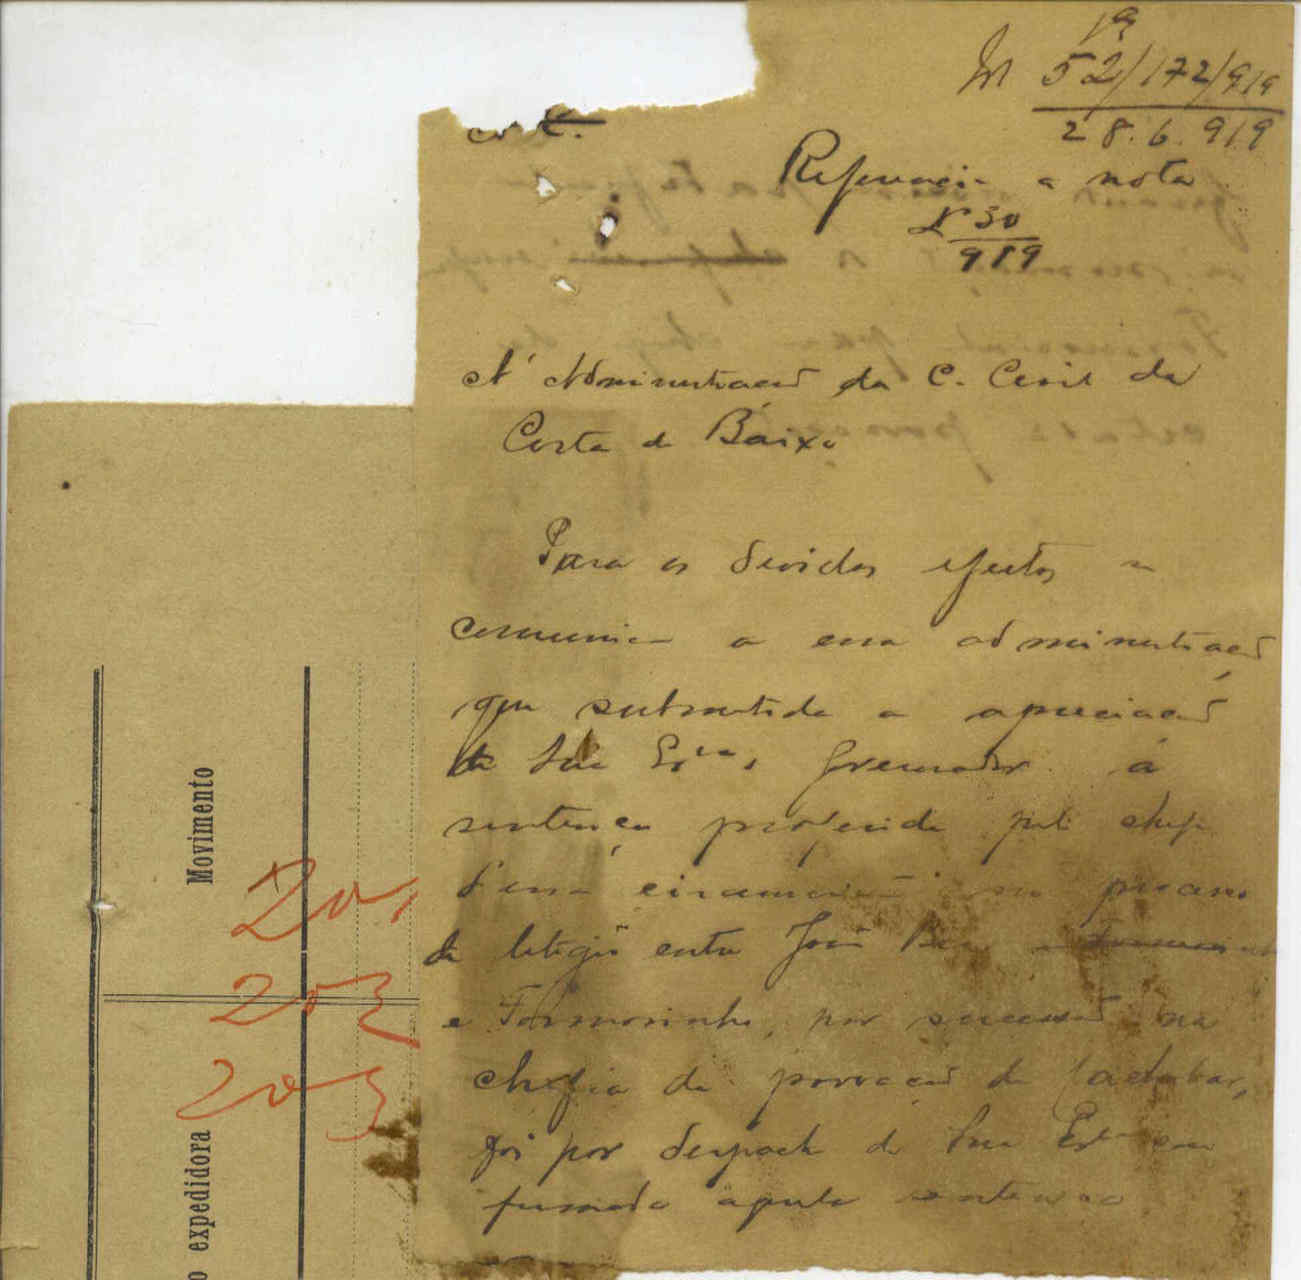 52/172/919
28.6.919
Referencia a nota
Nº 30
919
A' Administração da C. Civil da
Costa de Baixo
Para os devidos efeitos se
comunica a essa administração
que submetida a apreciação
de Sua Exª Governador á
sentença proferida pelo chefe
d'essa circunscrição no processo
de letigio entre José
e Formosinho, por sucessão na
chefia da povoação de
foi por despacho de Sua Exª con
firmada aquela sentença
Movimento
o expedidora
20
203
203